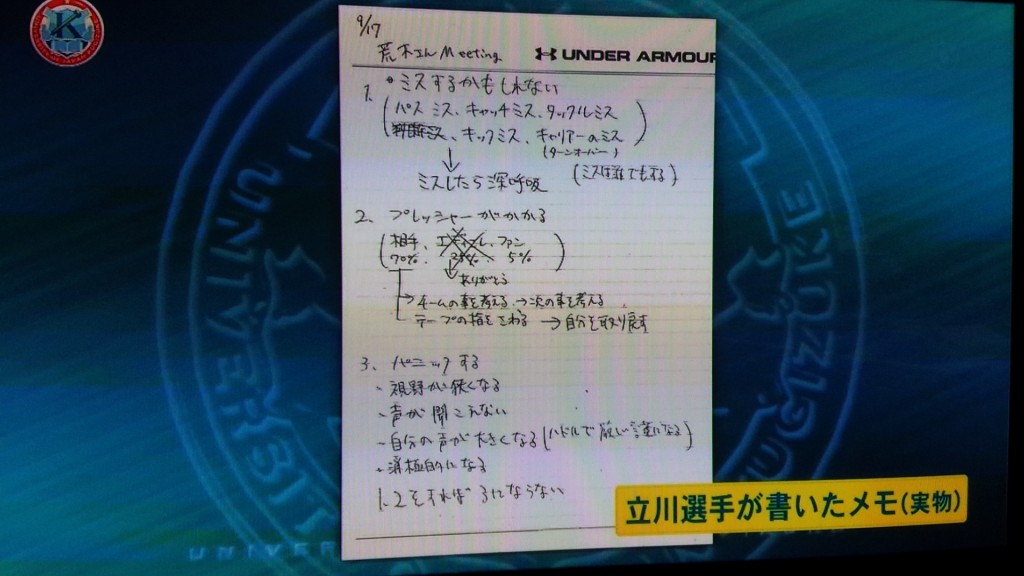 9/17
荒木さん Meeting.
UNDER ARMOUR
1. ・ミスするかもしれない
(パスミス、キャッチミス、タックルミス
、キックミス、キャリアーのミス)
(ターンオーバー)
↓
ミスしたら深呼吸 (ミスは誰でもする)
2. プレッシャーがかかる
(相手、 ファン)
70% 5%
ありがとう
→チームの事を考える→次の事を考える
テープの指をさわる →自分を取り戻す
3. パニックする
・視野が狭くなる
・声が聞こえない
・自分の声が大きくなる(ハドルで厳しい言葉になる)
・消極的になる
1、2をすれば3にならない
立川選手が書いたメモ(実物)
K
UNIVER